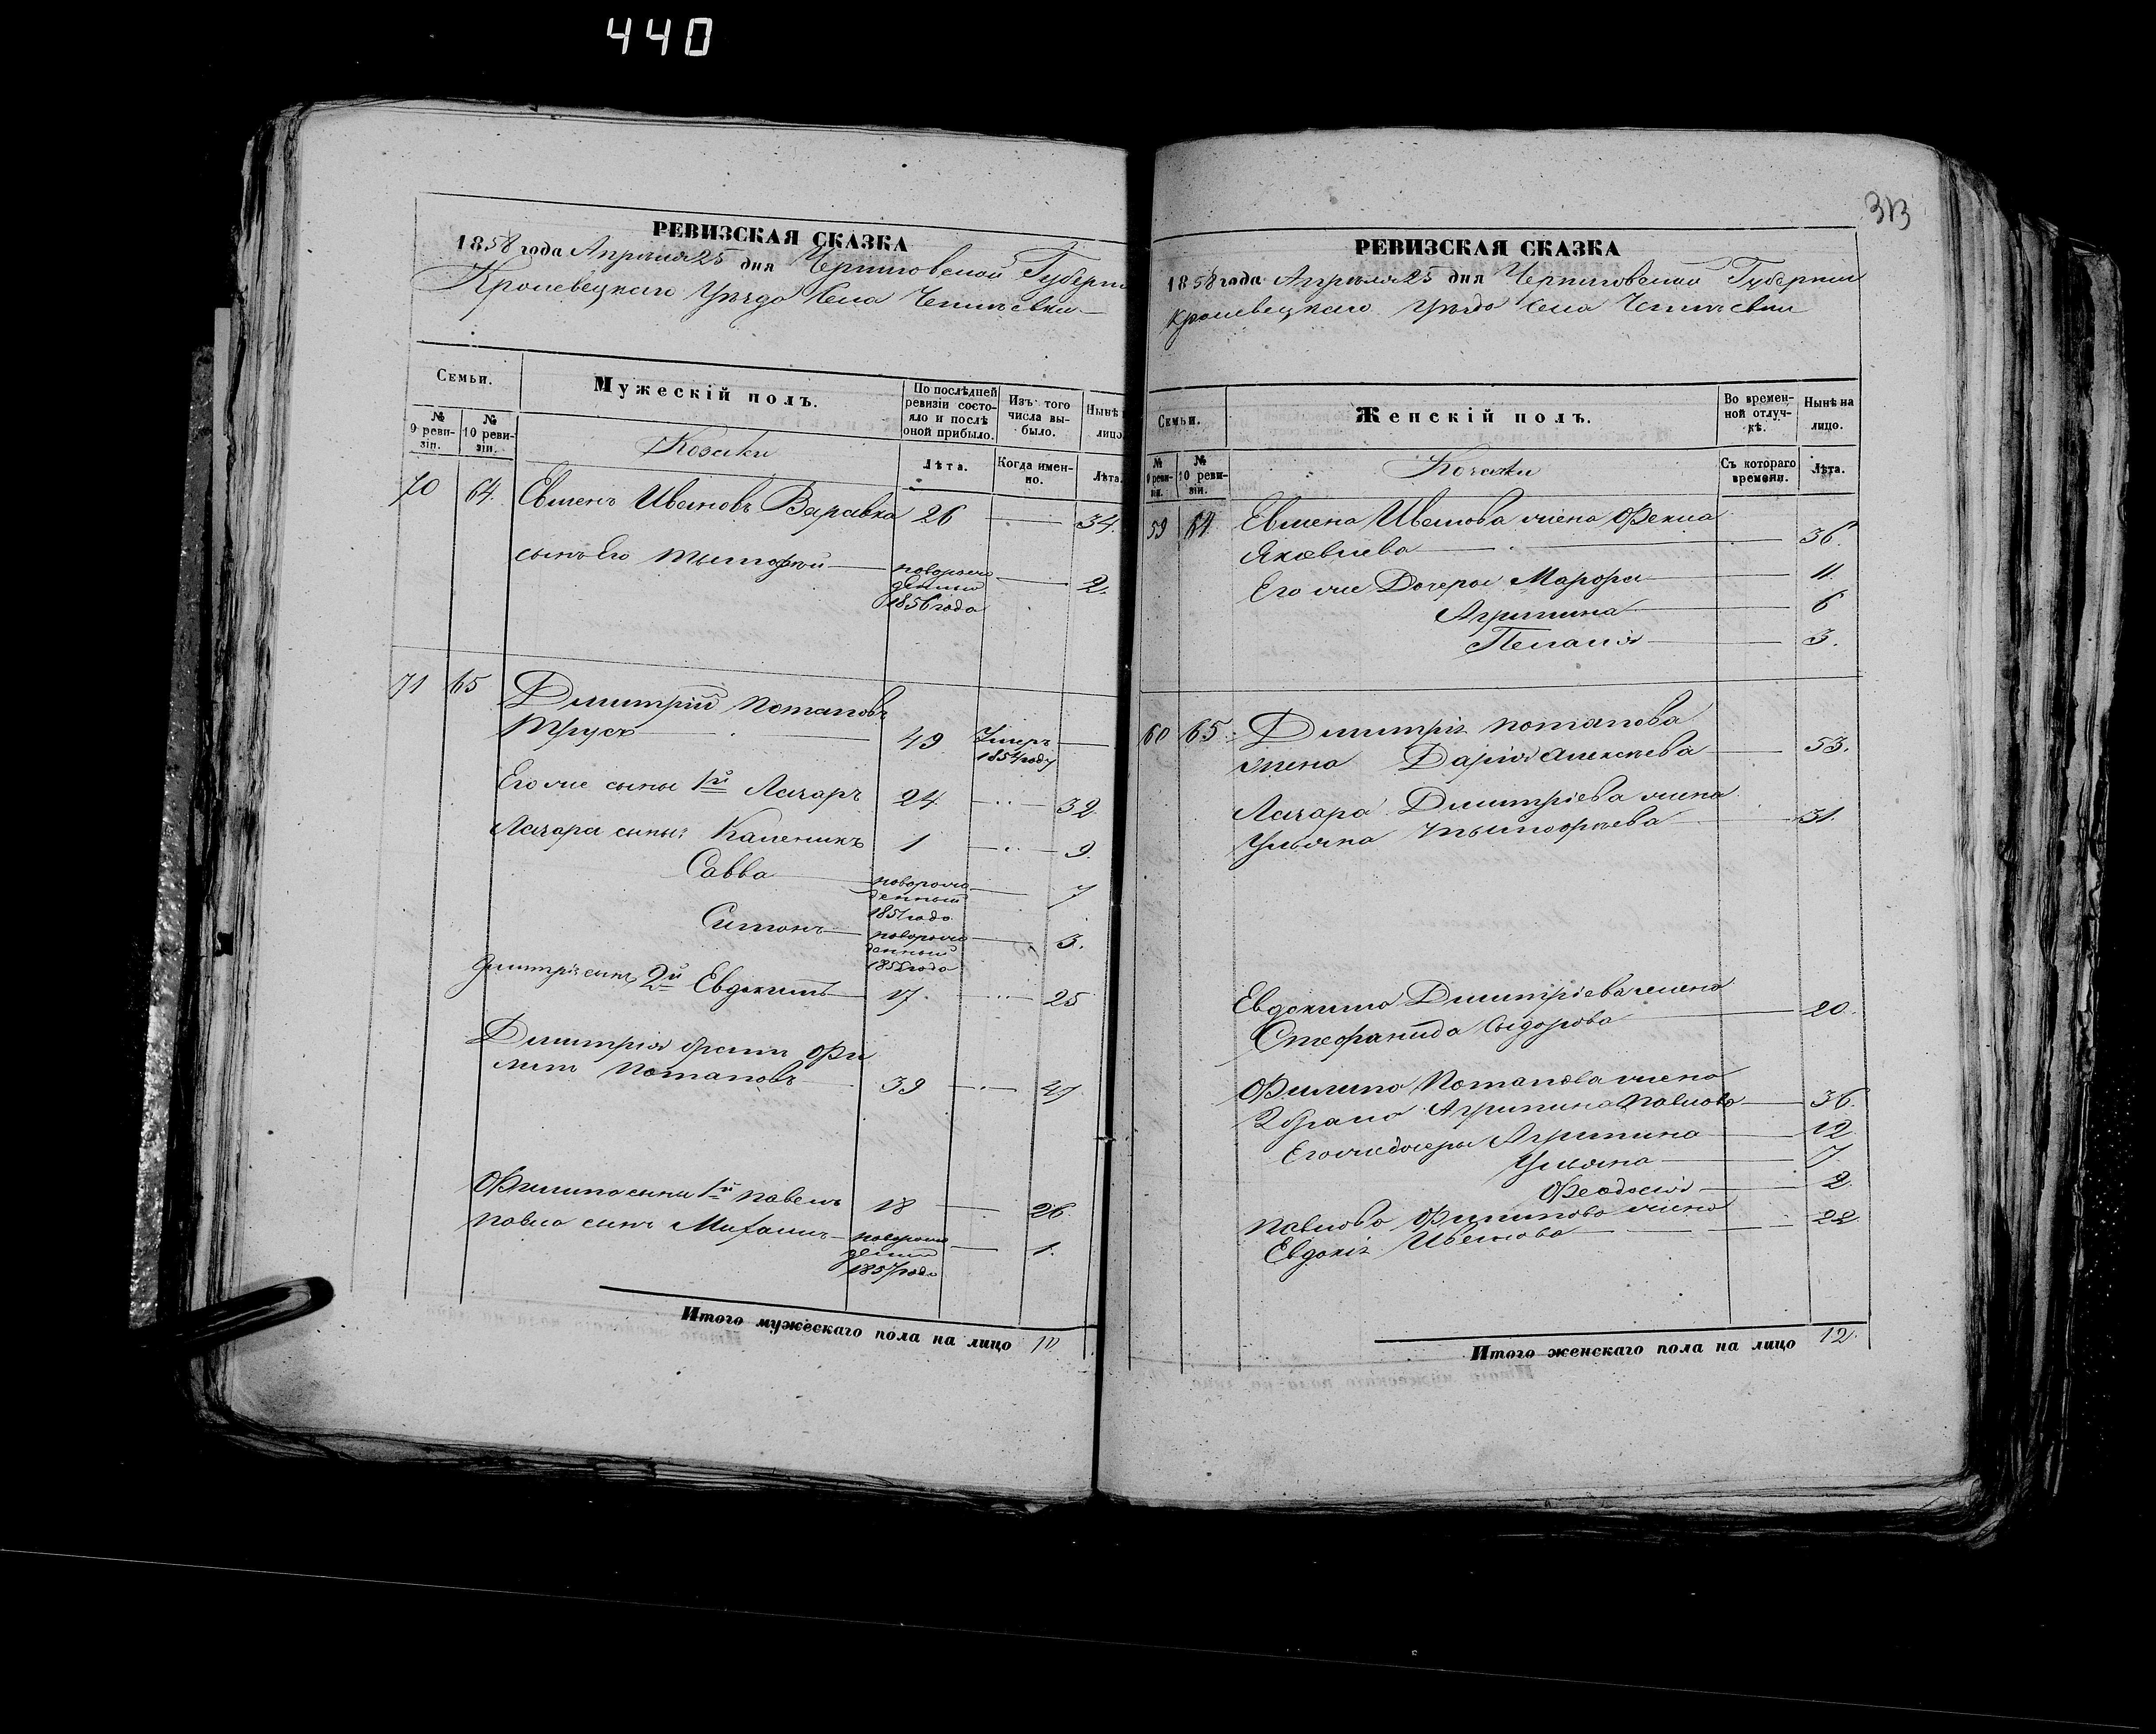 440
РЕВИЗСКАЯ СКАЗКА
1858 года Апреля 25 дня Черниговской Губерни
Кролевецкаго Уезда Села
Семьи.
Мужескій полъ.
По послѣдней ревизіи состояло и послѣ оной прибыло.
Изъ того числа выбыло.
Нынѣ
лицо
№ 9 ревизіи.
№ 10 ревизіи.
Козаки
Лѣта.
Когда именно.
Лѣта.
70 64. Евменъ Ивановъ Варавка 26 34.
сынъ Его Тымофей новорожденный 1856 года 2.
71 65 Дмитрій Потаповъ
Трусъ 49 Умеръ 1854 году
Его же сыны 1й Лазарь 24 32.
Лазаря сыны: Каленикъ 1 9.
Савва новорожденный 1851 года 7
Симонъ новорожденный года 3.
Дмитрія сынъ 2й Евдокимъ 17. 25
Дмитрія братъ Фи
липъ Потаповъ 39 47
Филипа сыны 1й Павелъ 18 26.
Павла сынъ Михаилъ новорожденный 1857 года 1.
Итого мужескаго пола на лицо 10
313
РЕВИЗСКАЯ СКАЗКА
1858 года Апреля 25 дня Черниговской Губернии
Кролевецкаго Уезда Села
Семьи.
Женскій полъ.
Во временной отлучкѣ.
Нынѣ на лицо.
№ 9 ревизіи.
№ 10 ревизіи.
Козаки
Съ котораго времени.
Лѣта.
59 64 Евмена Иванова жена Фекла
Яковлева 36.
Его же Дочеры Марфа 11.
Агрипина 6
Пелагія 3.
60 65. Дмитрія Потапова
жена Дарія Алексеева 53.
Лазаря Дмитріева жена
Ульяна Тымофеева 31.
Евдокима Дмитріева жена
Стефанида Сыдорова 20.
Филипа Потапова жена
2 брака Агрипина Павлова 36.
Его же дочеры Агрипина 12
Ульяна 7
Феодосія 2.
Павлова Филипова жена
Евдокія Иванова 22
Итого женскаго пола на лицо 12.